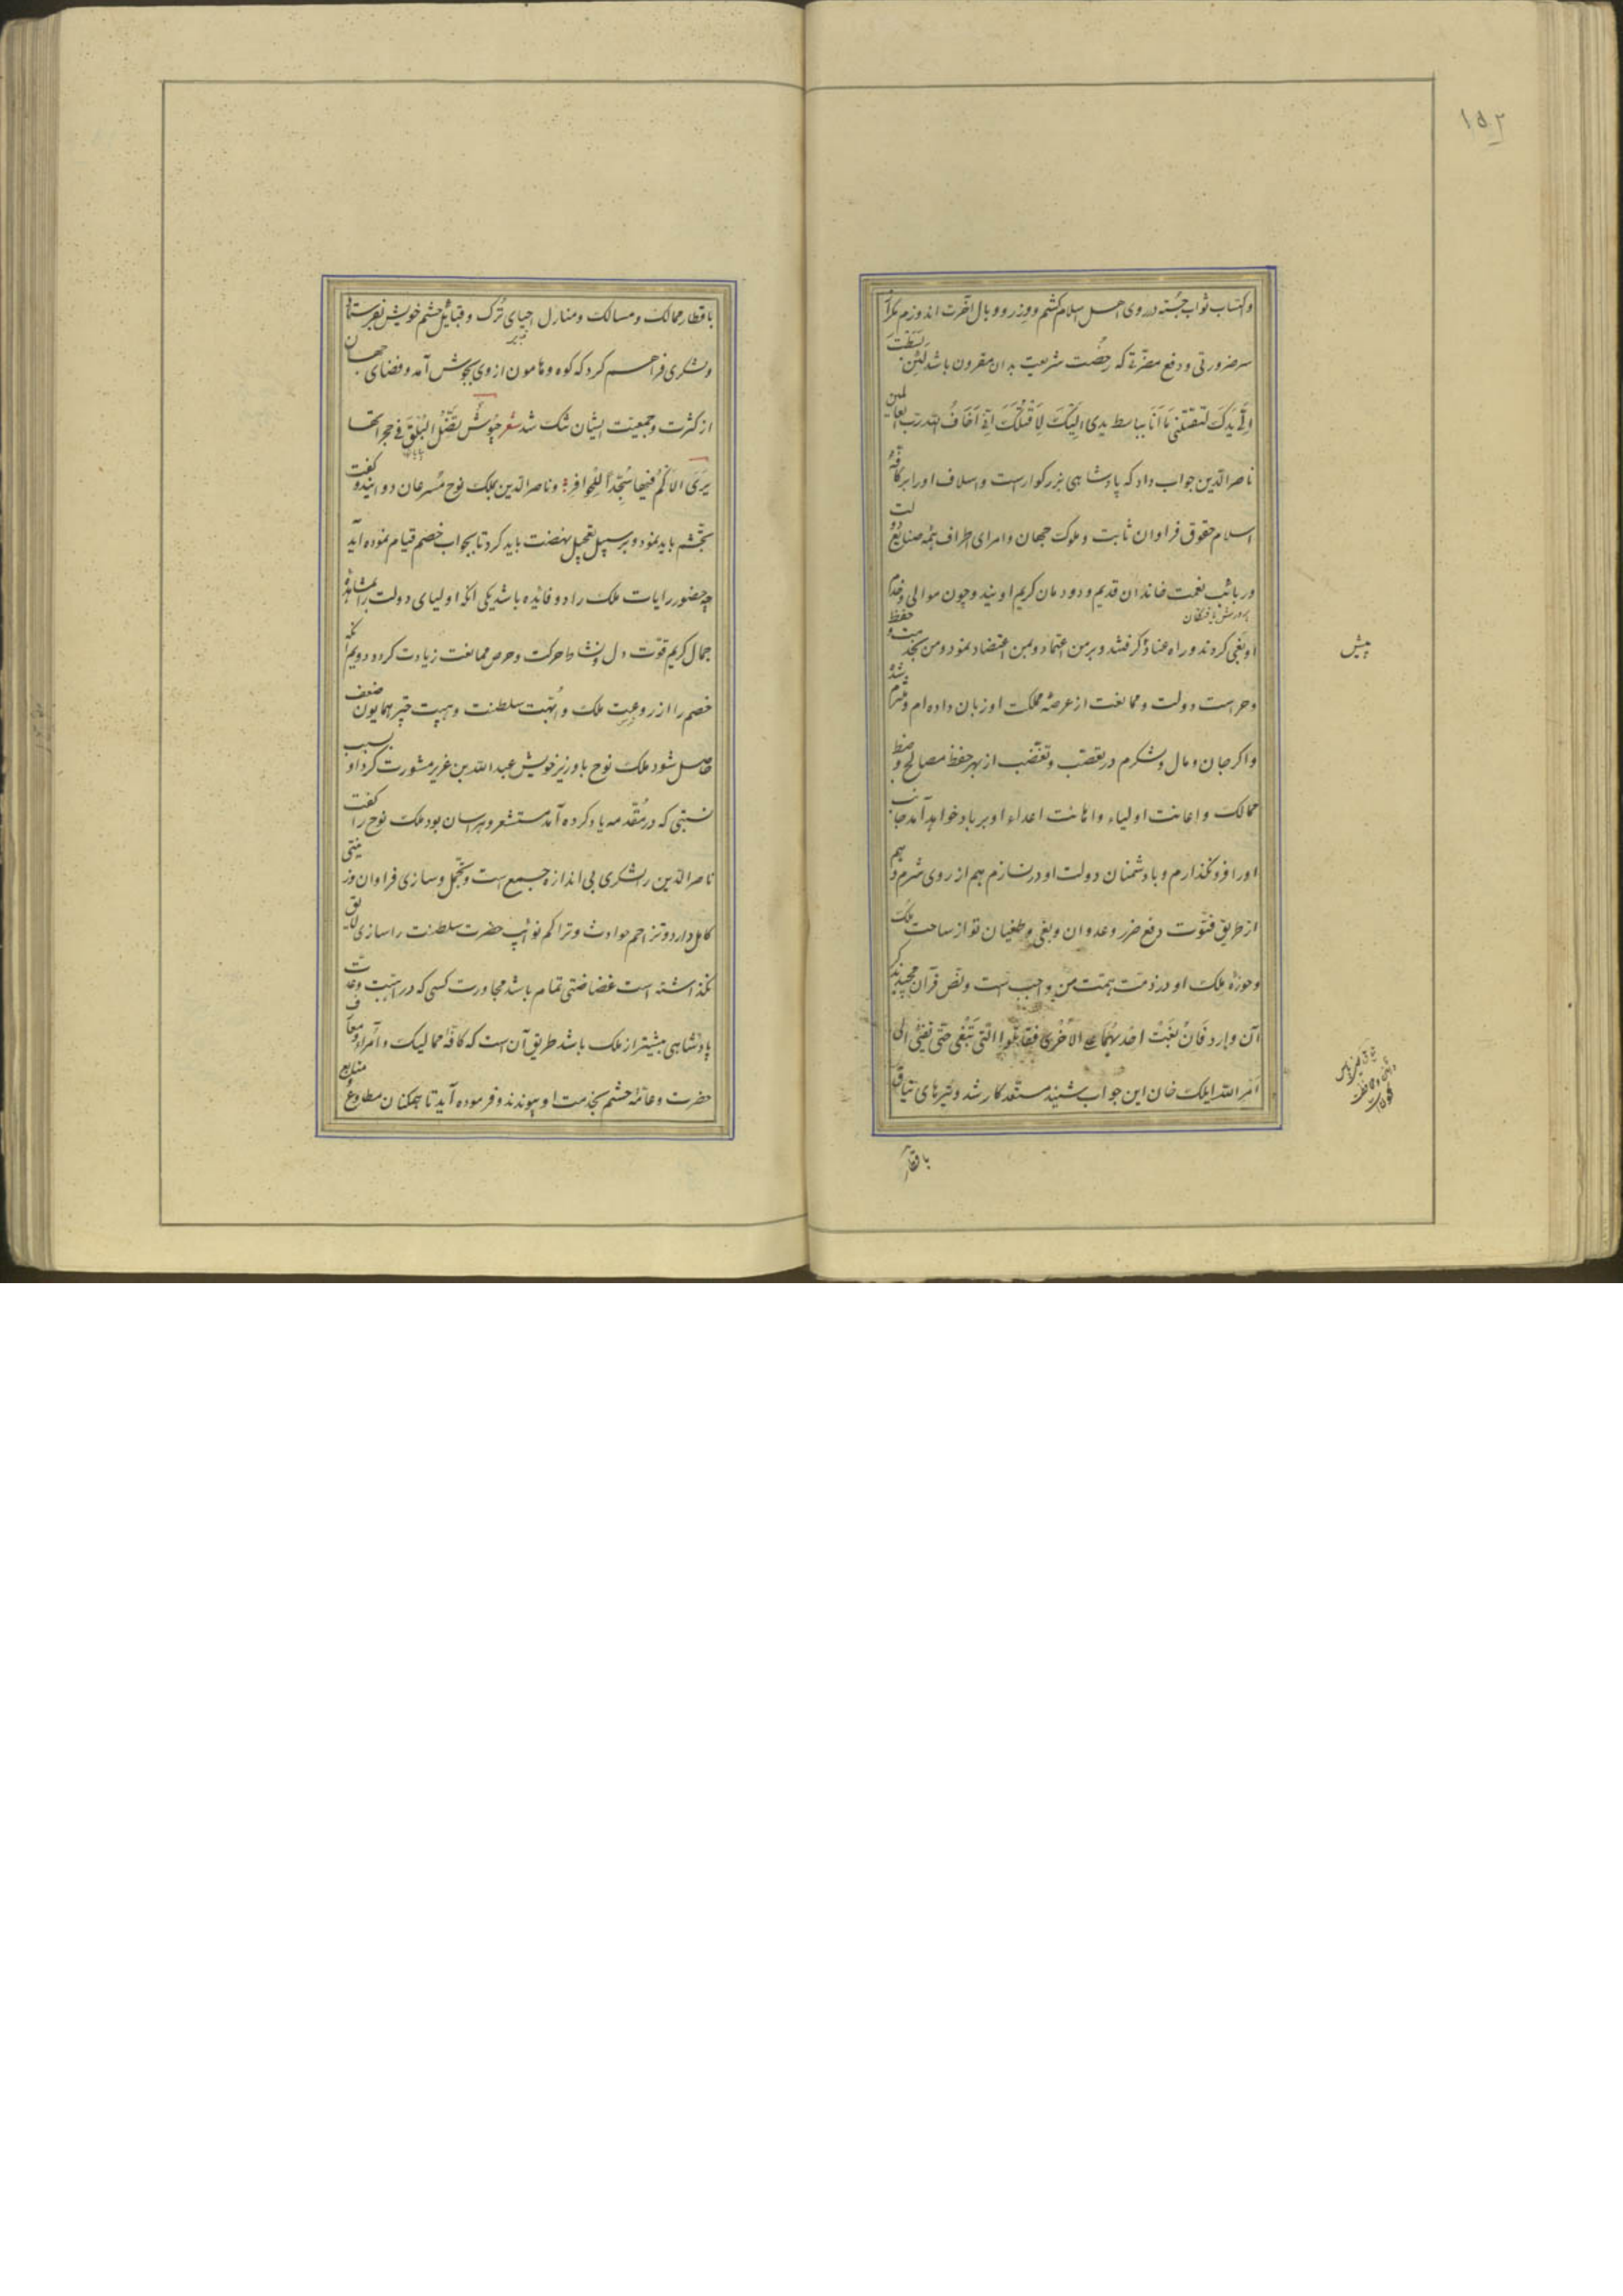 ۱۵۲
واکتساب ثواب جسته در روی اهل اسلام کشم ووزر ووبال آخرت اندوزم مکر از
سر ضرورتی ودفع مضرّتی که رخصت شریعت بدان مقرون باشد لَئِن بَسَطْتَ
اِلَیَّ یَدَکَ لِتَقْتُلَنی مَا اَنَا بِبَاسِطٍ یَدِیَ اِلَیْکَ لِاَقْتُلَکَ اِنّی اَخَافُ اللّٰه رَبّ العالمین
ناصرالدّین جواب داد که پادشاهی بزرکوارست واسلاف اورا بر کافّهٔ
اسلام حقوق فراوان ثابت وملوک جهان وامرای اطراف همه صنایع دولت
وربائب نعمت خاندان قدیم ودودمان کریم اویند وچون موالی وخدم
پرورش یافتکان
او بغی کردند وراه عناد کرفتند وبر من اعتماد وبمن اعتضاد نمود ومن بخدمت وحفظ
پیش
وحراست دولت وممانعت از عرصهٔ مملکت او زبان داده ام وملتزم شده
واکر جان ومال ولشکرم در تعصّب وتغضّب از بهر حفظ مصالح وضبط
ممالک واعانت اولیاء واهانت اعداء او برباد خواهد آمد جانب
اورا فرو نکذارم وبا دشمنان دولت او در نسازم هم از روی شرم وهم
از طریق فتوّت دفع ضرر وعدوان وبغی وطغیان تو از ساحت ملک
وحوزهٔ ملک او در ذمّت همّت من واجبست ونصّ قرآن مجید بذکر
آن وارد فَاِنْ بَغَتْ اِحْدٰیهُمَا عَلَی الاُخْرٰی فَقَاتِلُوا الَّتی تَبْغی حَتّٰی تَفیءَ اِلٰی
اَمْرِ اللّٰه ایلک خان این جواب شنید مستعد کار شد وتیرهای
باقطار
باقطار ممالک ومسالک ومنازل احیای تُرک وقبایل حشم خویش بفرستاد
ولشکری فراهم کرد که کوه وهامون از وی بجوش آمد وفضای جهان
از کثرت وجمعیّت ایشان تنک شد شعر جُیُوشٌ تَضِلُّ البُلْقُ فی حَجَراتها
یَرَی الاُکْمُ فیها سُجَّداً لِلحَوافِرِ وناصرالدّین بملک نوح مُسرعان دوانید وکفت
تجشّم باید نمود وبر سبیل تعجیل نهضت باید کرد تا بجواب خصم قیام نموده آید
چه حضور رایات ملک را دو فائده باشد یکی آنکه اولیای دولت را بمشاهدهٔ
جمال کریم قوّت دل ونشاط حرکت وحرص ممانعت زیادت کردد دویم آنکه
خصم را از روعت ملک واُبّهت سلطنت وهیبت چتر همایون ضعف
حاصل شود ملک نوح با وزیر خویش عبداللّه بن عزیر مشورت کرد او بسبب
نسبتی که در مُقدّمه یاد کرده آمد مستشعر وهراسان بود ملک نوح را کفت
ناصرالدّین را لشکری بی اندازه جمع است وتجمّل وسازی فراوان وزینتی
کامل دارد وتزاحم حوادث وتراکم نوائب حضرت سلطنت را سازی لایق
نکذاشته است غضاضتی تمام باشد مجاورت کسی که در اُهبت وعدّت
پادشاهی بیشتر از ملک باشد طریق آن است که کافّهٔ ممالیک واُمراء ومعارف
حضرت وعامّهٔ حشم بخدمت او پیوندند وفرموده آید تا همکنان مطاوع ومتابع